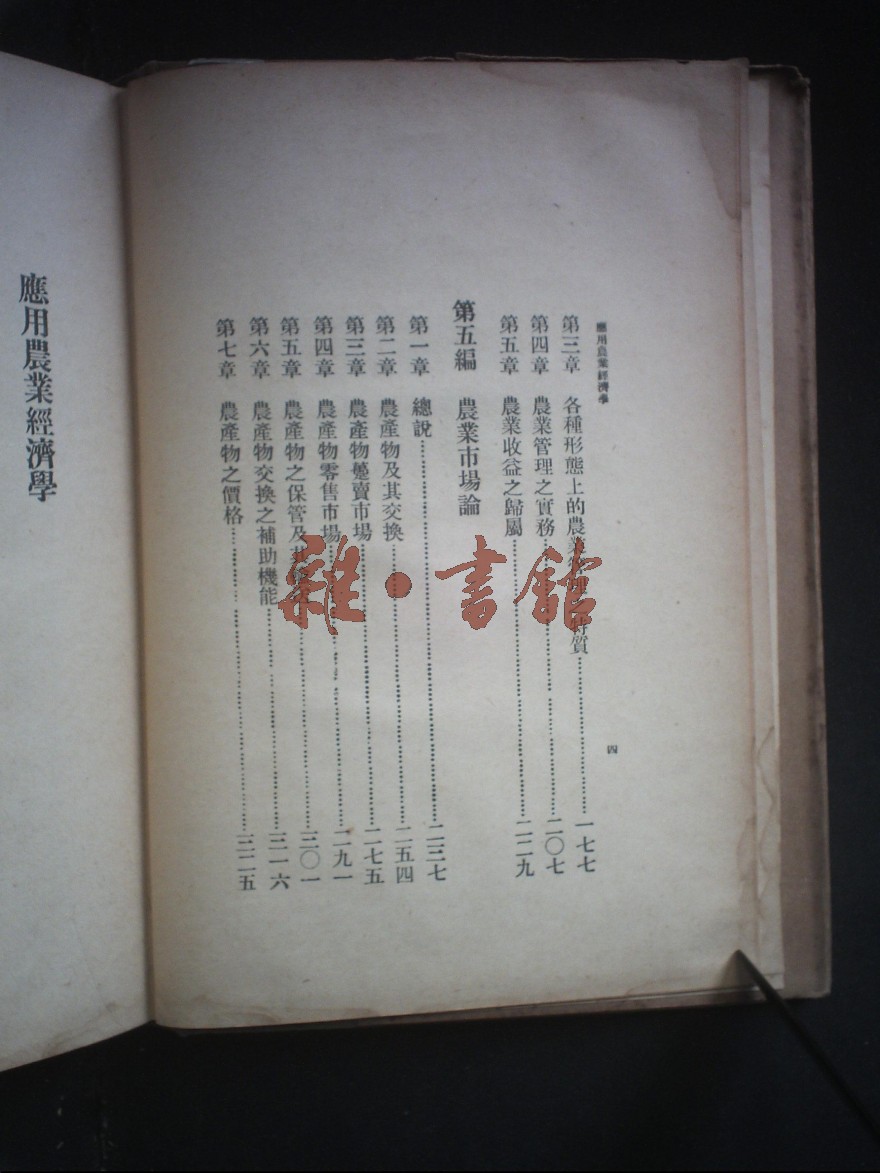 應用農業經濟學
第三章 各種形態上的農業管理之特質…………一七七
第四章 農業管理之實務…………二〇七
第五章 農業收益之歸屬…………二二九
第五編 農業市場論
第一章 總說…………二三七
第二章 農產物及其交換…………二五四
第三章 農產物躉賣市場…………二七五
第四章 農產物零售市場…………二九一
第五章 農產物之保管及其…………三〇一
第六章 農產物交換之補助機能…………三一六
第七章 農產物之價格…………三二五
四
應用農業經濟學
雜·書館